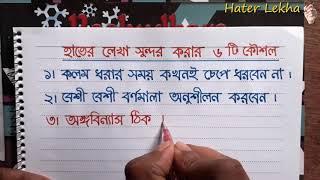 Hater Lekha
হাতের লেখা সুন্দর করার ৬ টি কৌশল
১। কলম ধরার সময় কখনই চেপে ধরবেন না।
২। বেশী বেশী বর্ণমালা অনুশীলন করবেন।
৩। অঙ্গবিন্যাস ঠিক